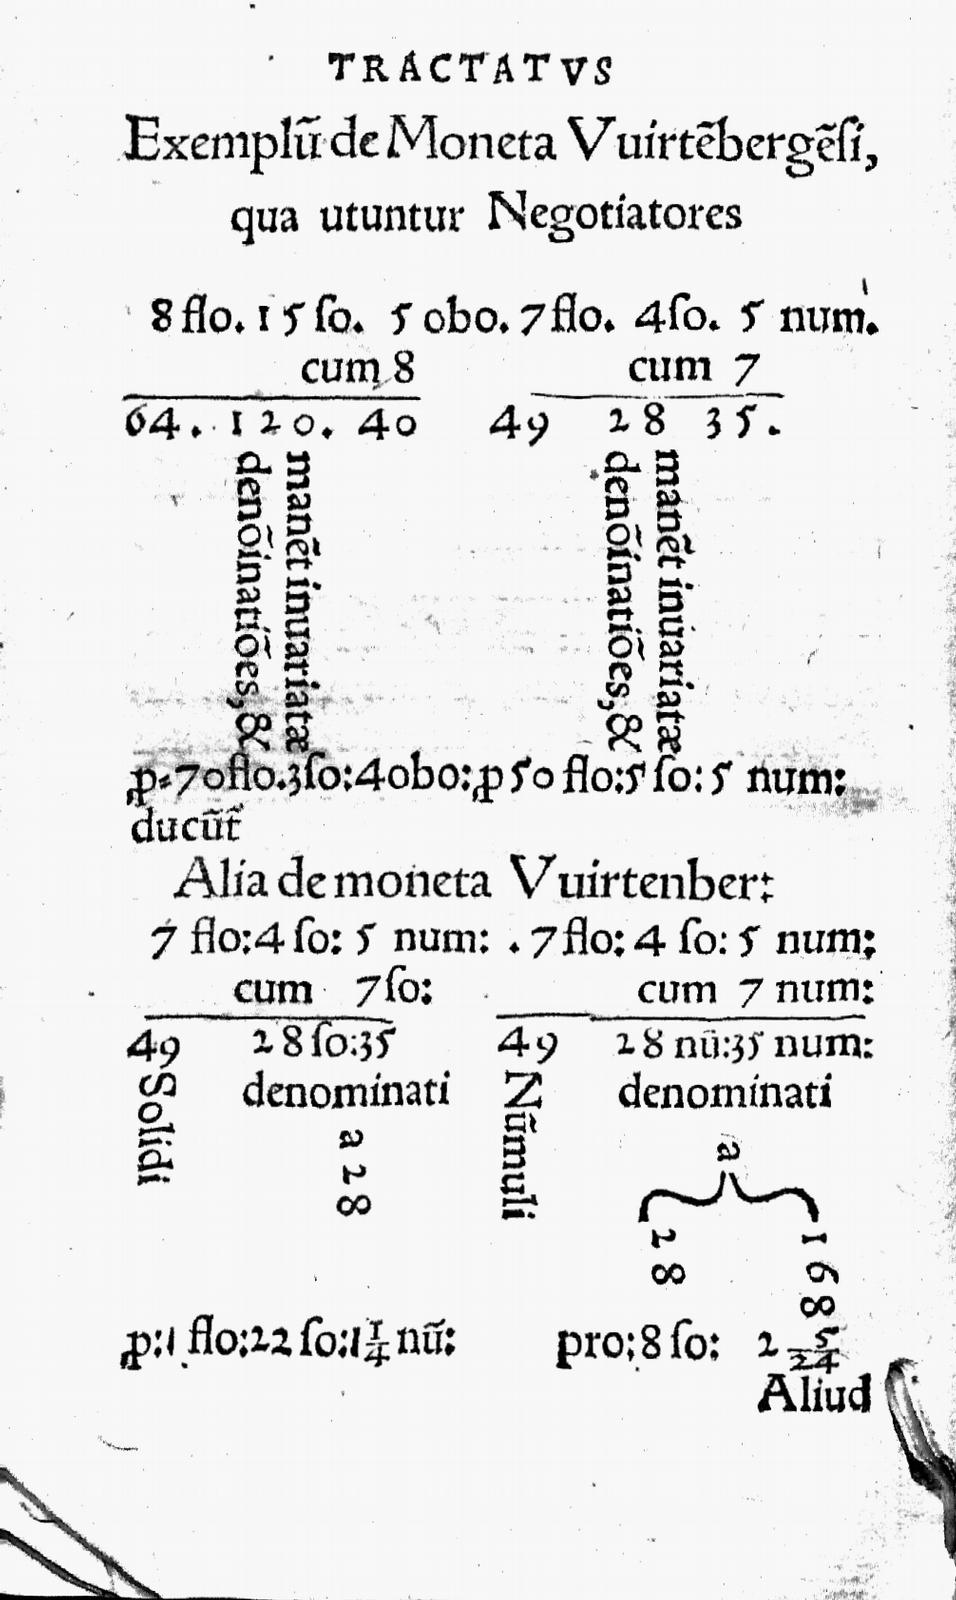 TRACTATVS
Exemplũ de Moneta Vuirtẽbergẽſi,
qua utuntur Negotiatores
8 flo. 15 ſo. 5 obo. 7 flo. 4 ſo. 5 num.
cum 8 cum 7
64. 120. 40 49 28 35.
manẽt inuariatæ
denõinatiões, &
manẽt inuariatæ
denõinatiões, &
ꝓ 70 flo. 3 ſo: 4 obo: ꝓ 50 flo: 5 ſo: 5 num:
ducũt
Alia de moneta Vuirtenber:
7 flo: 4 ſo: 5 num: . 7 flo: 4 ſo: 5 num:
cum 7 ſo: cum 7 num:
49 28 ſo: 35 49 28 nũ: 35 num:
Solidi
denominati
a 28
Nũmuli
denominati
a
28 168
ꝓ: 1 flo: 22 ſo: 1 1/4 nũ: pro: 8 ſo: 2 5/24
Aliud